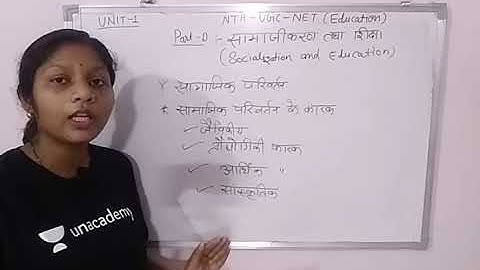 UNIT-1
NTA-UGC-NET (Education)
Part-D :- सामाजीकरण तथा शिक्षा
(Socialization and Education)
सामाजिक परिवर्तन
* सामाजिक परिवर्तन के कारक
✓ जैविकीय
✓ प्रौद्योगिकी कारक
✓ आर्थिक "
✓ सांस्कृतिक
unacademy